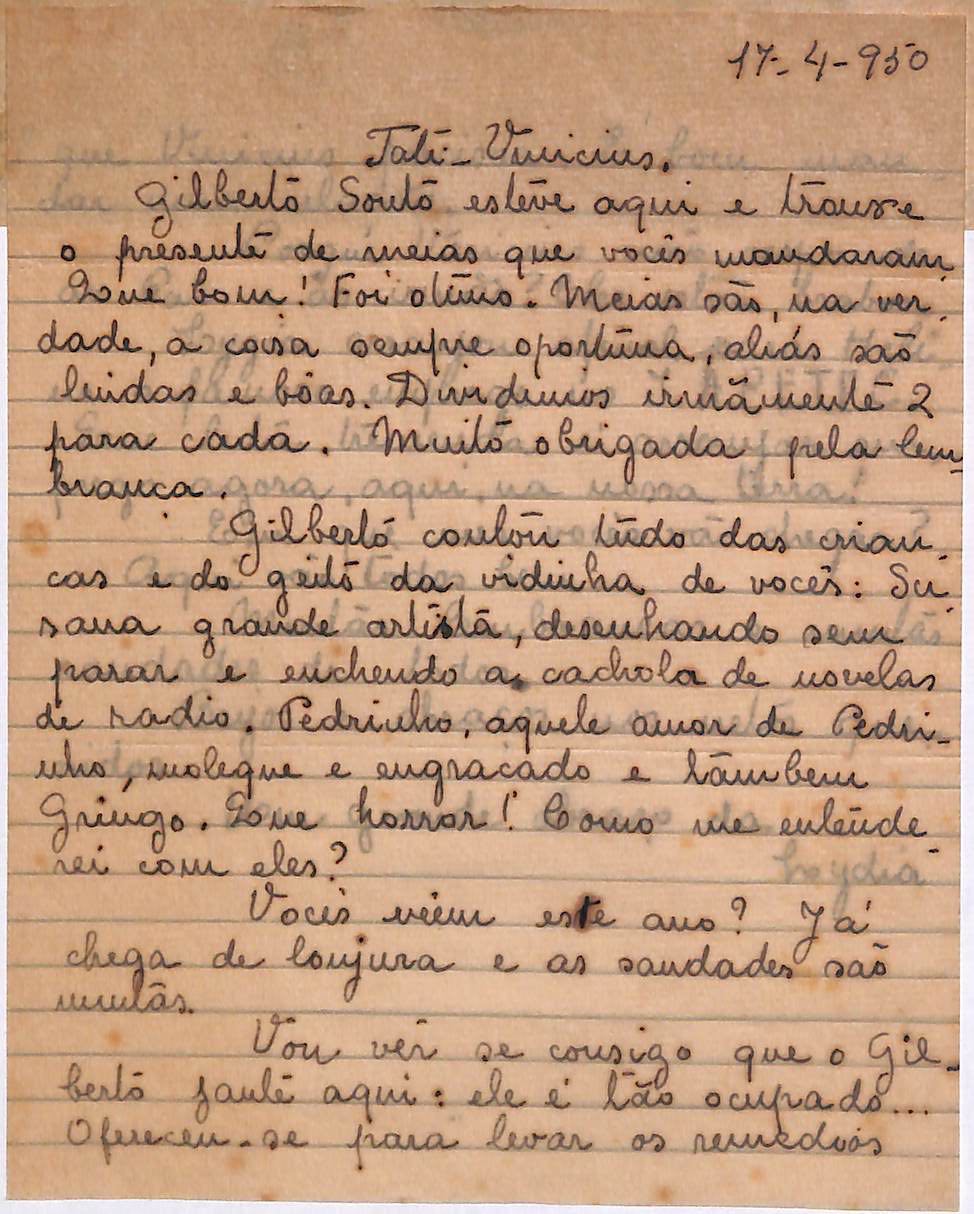 17-4-950
Tati - Vinicius.
Gilberto Souto estêve aqui e trouxe
o presente de meias que vocês mandaram
Que bom! Foi otimo. Meias são, na ver-
dade, a coisa sempre oportuna, aliás são
lindas e bôas. Dividimos irmãmente 2
para cada. Muito obrigada pela lem-
brança.
Gilberto contou tudo das crian-
cas e do geito da vidinha de vocês: Su-
sana grande artista, desenhando sem
parar e enchendo a cachola de novelas
de radio. Pedrinho, aquele amor de Pedri-
nho, moleque e engracado e tambem
Gringo. Que horror! Como me entende-
rei com eles?
Vocês vêem este ano? Já
chega de lonjura e as saudades são
muitas.
Vou vêr se consigo que o Gil-
berto jante aqui: ele é tão ocupado...
Ofereceu-se para levar os remedios